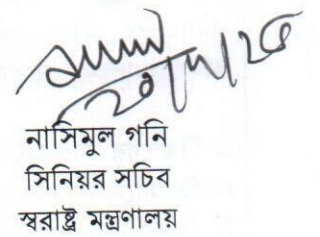 নাসিমুল গনি
সিনিয়র সচিব
স্বরাষ্ট্র মন্ত্রণালয়